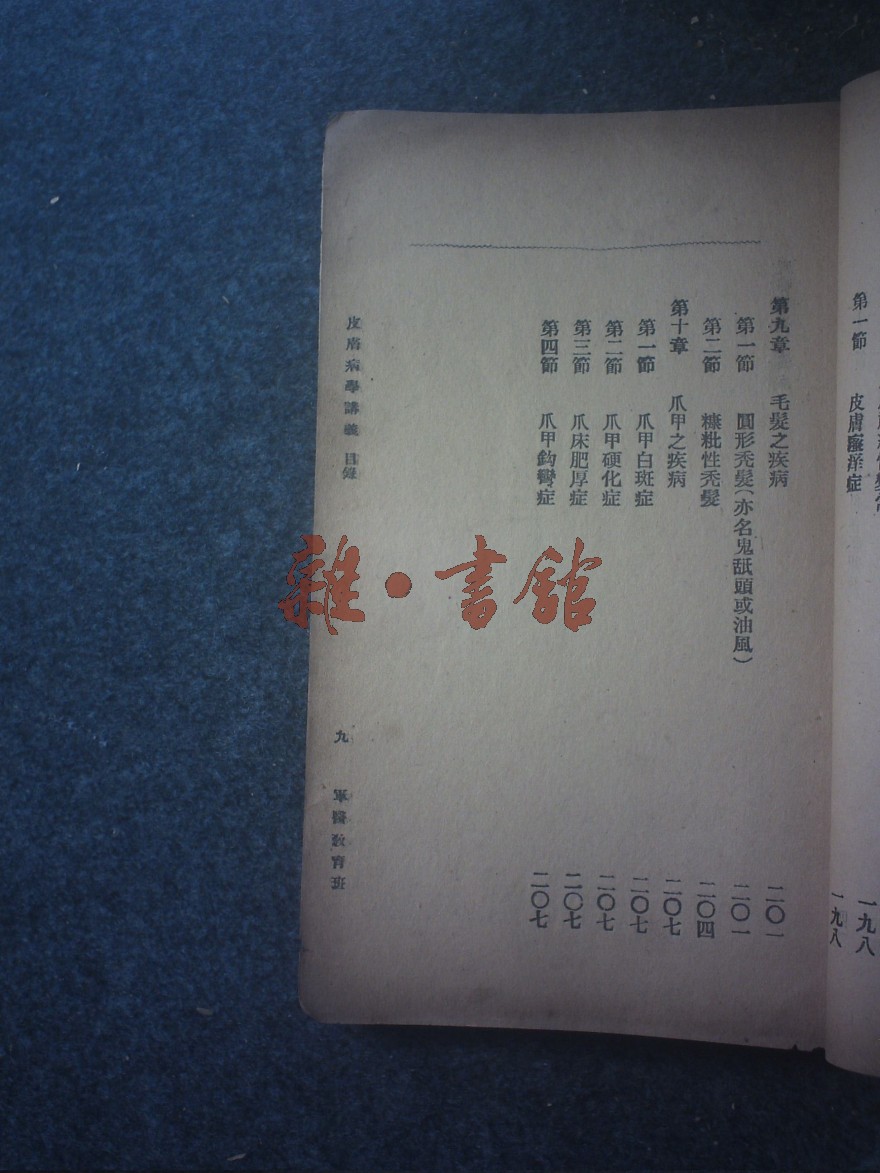 第一節 皮膚瘙痒症 一九八
一九八
第九章 毛髮之疾病 二〇一
第一節 圓形禿髮(亦名鬼舐頭或油風) 二〇一
第二節 糠粃性禿髮 二〇四
第十章 爪甲之疾病 二〇七
第一節 爪甲白斑症 二〇七
第二節 爪甲硬化症 二〇七
第三節 爪床肥厚症 二〇七
第四節 爪甲鈎彎症 二〇七
皮膚病學講義 目錄 九 軍醫
雜·書館